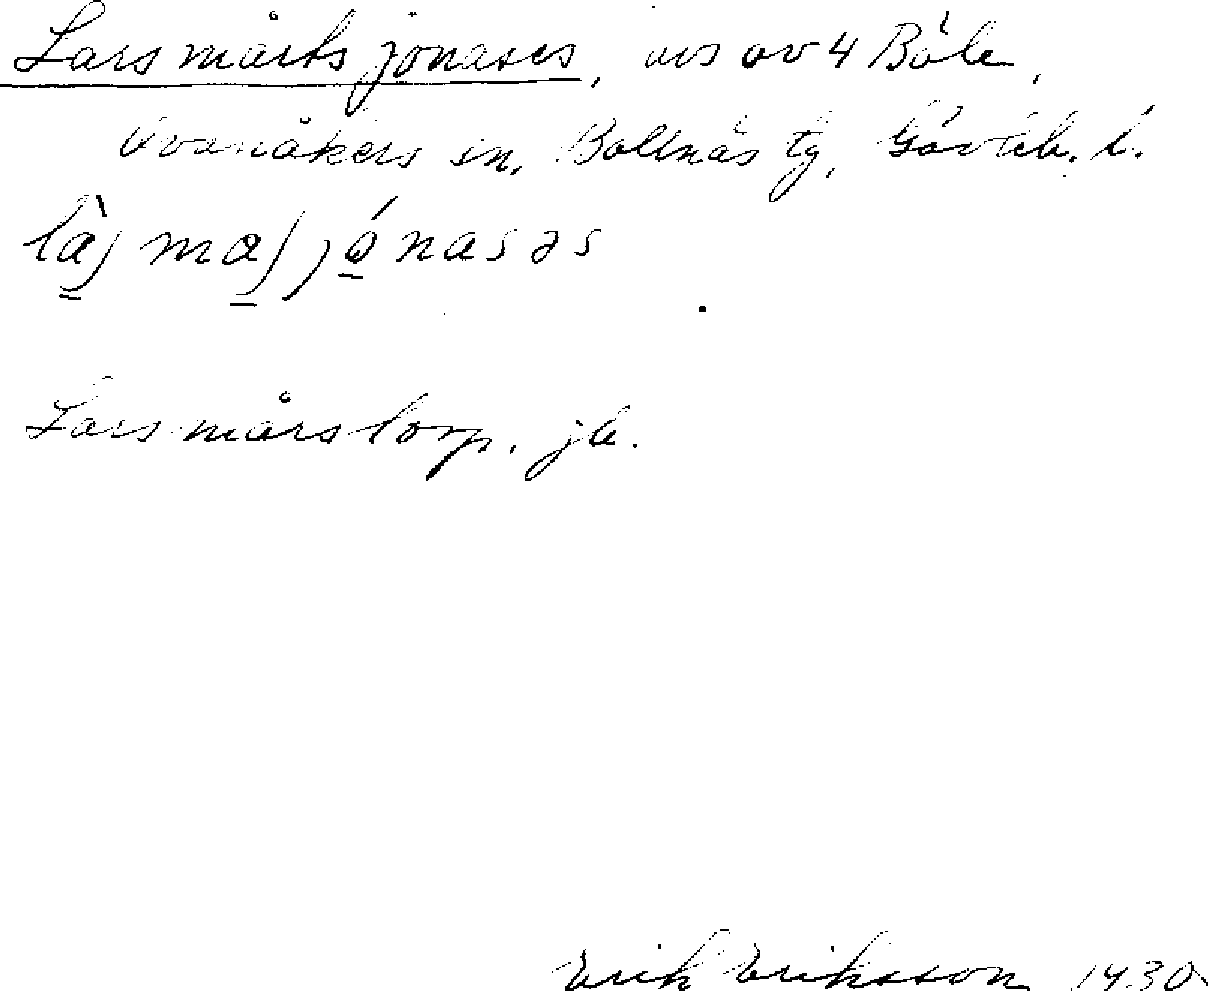 Larsmårtsjonases, urs av 4 Böle,
Ovanåkers sn, Bollnäs tg, Gävleb. l.
Larsmårstorp, jb.
Erik Eriksson 1930